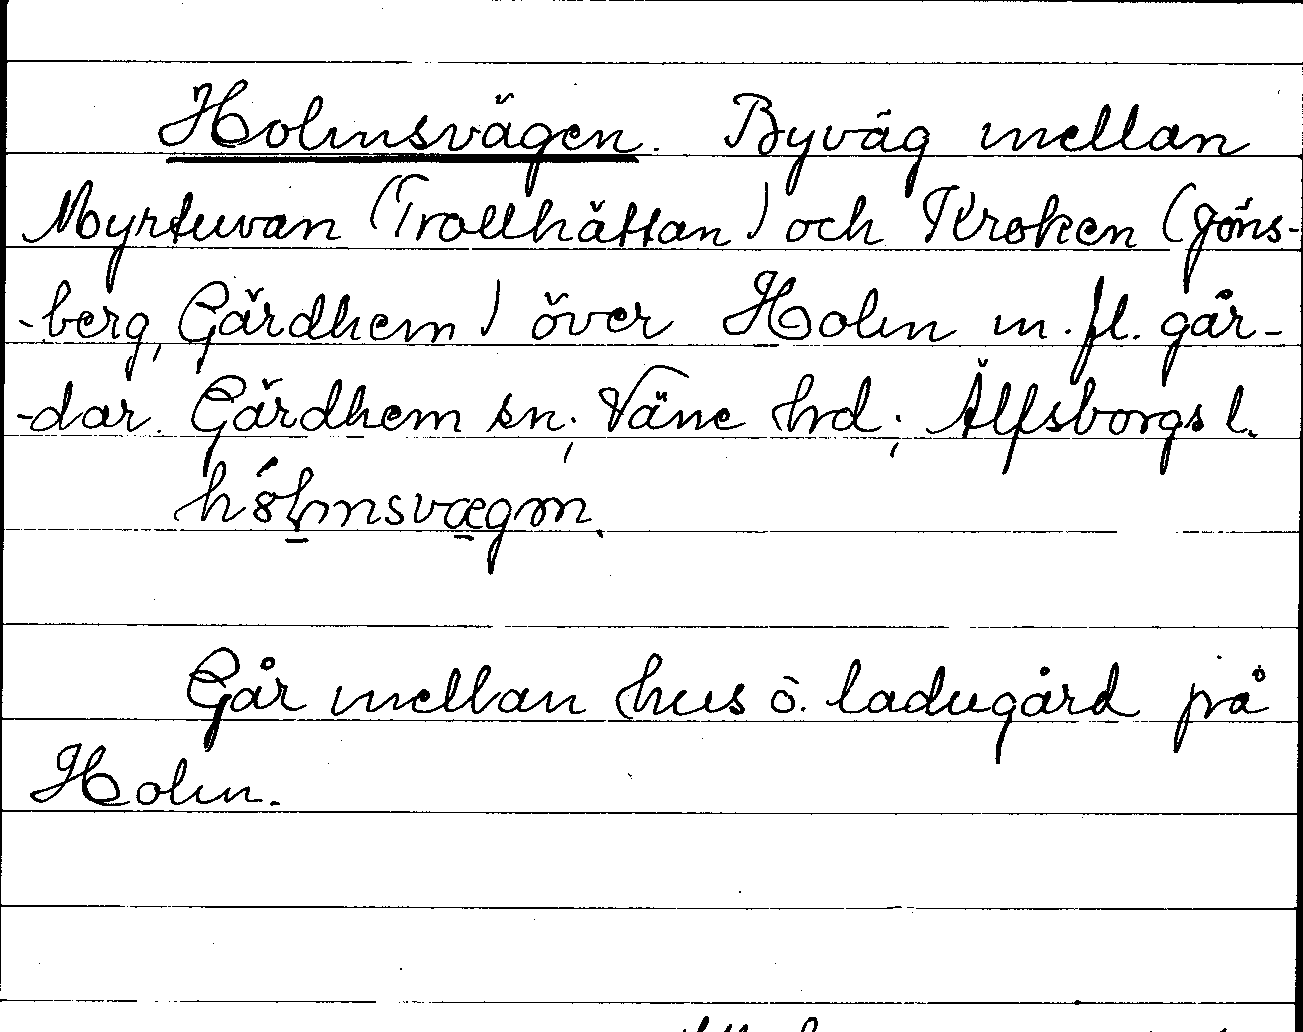 Holmsvägen. Byväg mellan
Myrtuvan (Trollhättan) och Kroken (Jöns-
-berg, Gärdhem) över Holm m. fl. går-
-dar. Gärdhem sn; Väne hrd; Älfsborgs l.
Går mellan hus o. ladugård på
Holm.